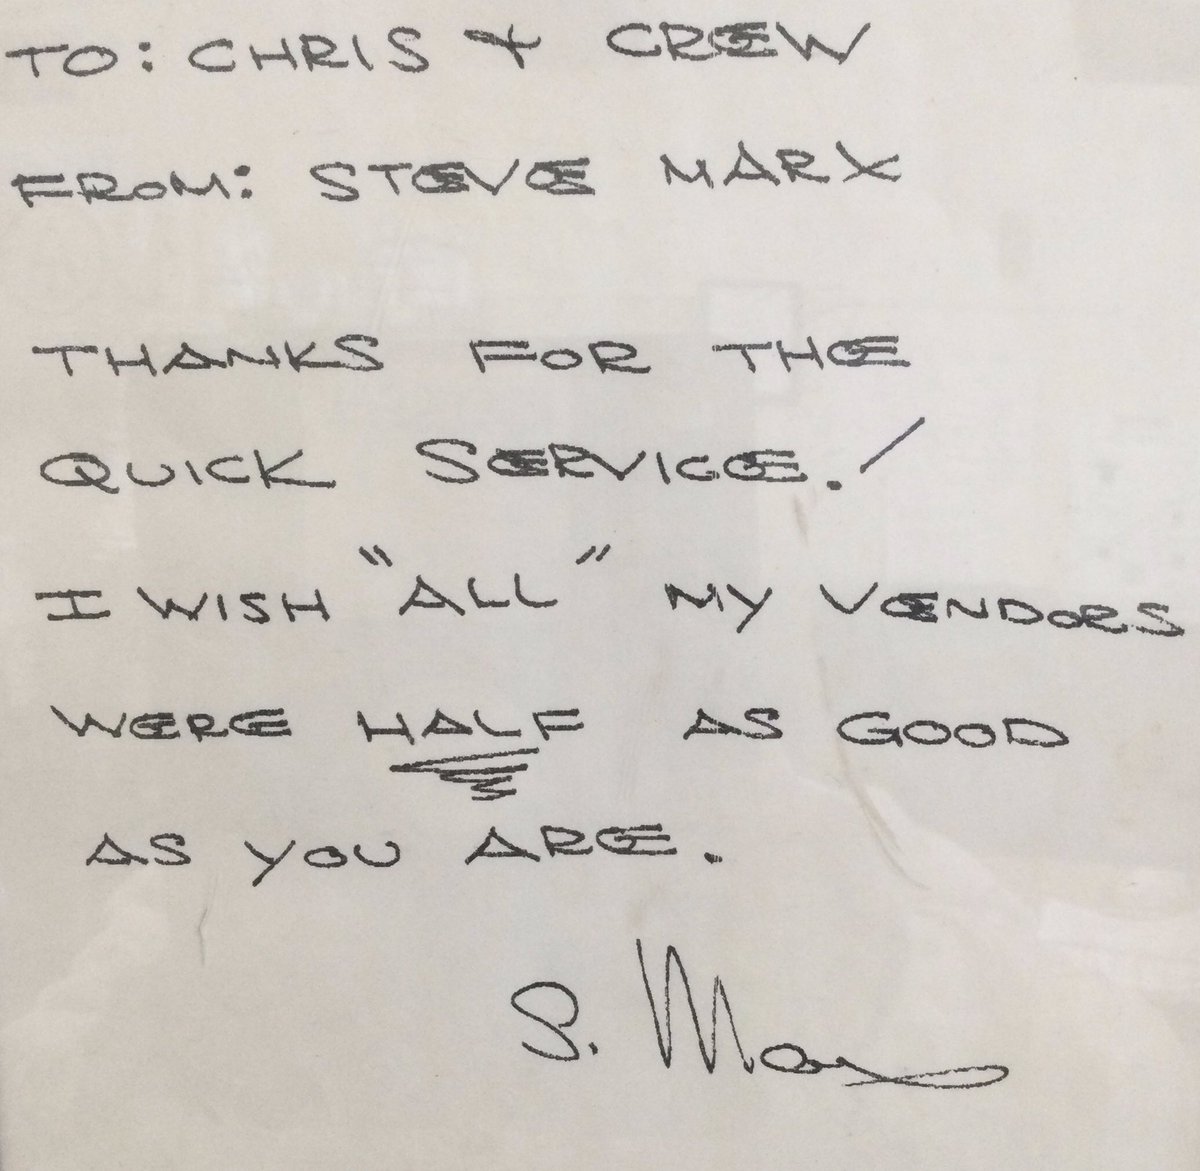 TO: CHRIS & CREW
FROM: STEVE MARX
THANKS FOR THE
QUICK SERVICE!
I WISH "ALL" MY VENDORS
WERE HALF AS GOOD
AS YOU ARE.
S. Marx